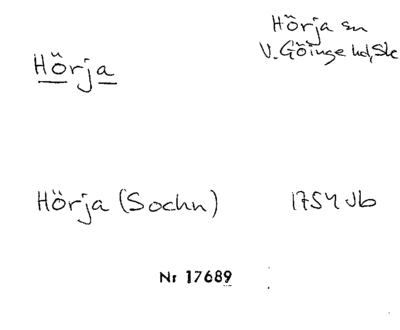 Hörja sn
V. Göinge hd, Sk
Hörja
Hörja (Sochn) 1754 Jb
Nr 17689